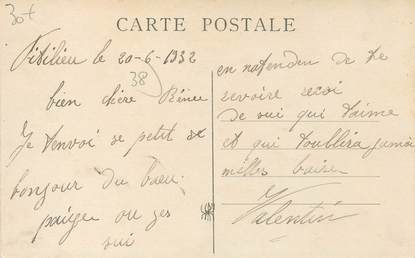 30+
CARTE POSTALE
Fitilieu le 20-6-1932
38
bien chère Rénée
Je t'envoi se petit
bonjour du beau
paige ou ges
sui
en natenden de te
revoire recoi
de sui qui t'aime
et qui t'oublira jamai
milles baiser
Valentin